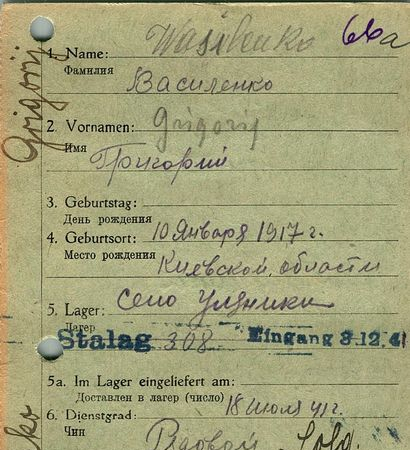 1. Name: Wasilenko 66a
Фамилия
Василенко
Grigorij
2. Vornamen: Grigorij
Имя
Григорий
3. Geburtstag:
День рождения
4. Geburtsort: 10 Января 1917 г.
Место рождения
Киевской области
5. Lager: село Уляники
Лагерь
Stalag 308 Eingang 3.12.41
5a. Im Lager eingeliefert am:
Доставлен в лагерь (число) 18 июля 41 г.
6. Dienstgrad:
Чин
Рядовой Sold.
ko